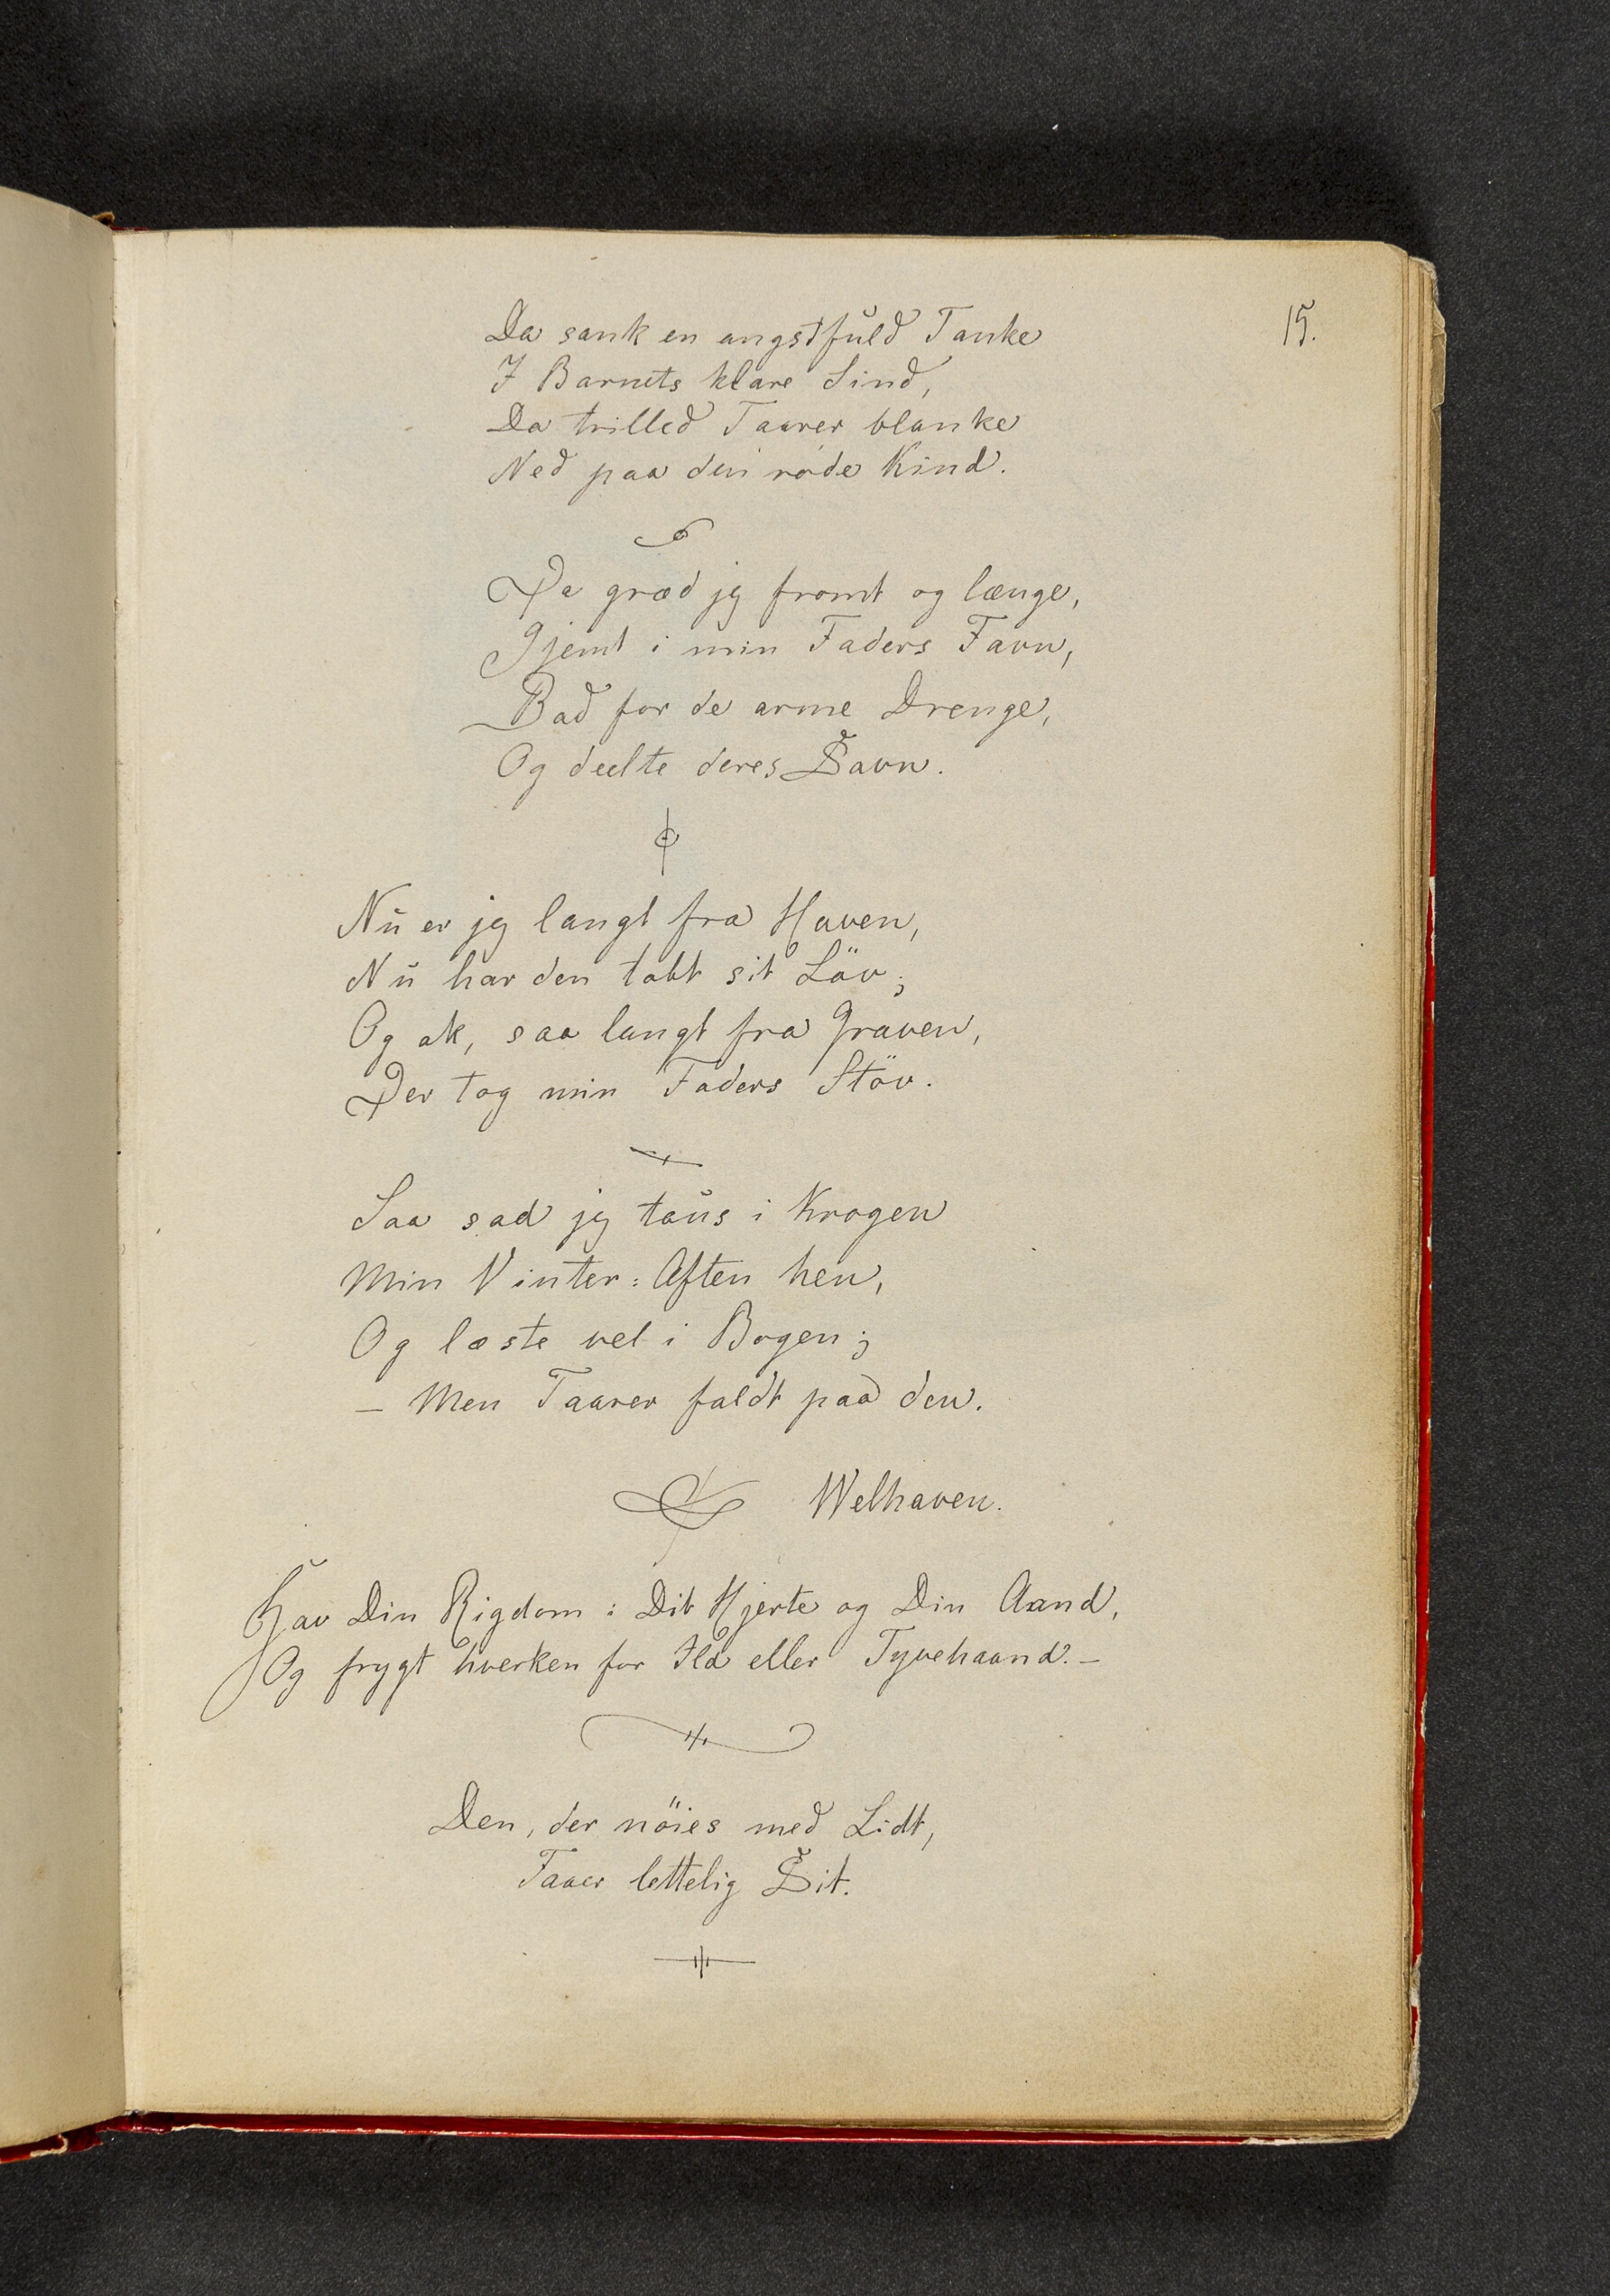 15.
Da sank en angstfuld Tanke
I Barnets klare Sind,
Da trilled Taarer blanke
Ned paa den røde Kind.
Da græd jeg fromt og længe,
Gjemt i min Faders Favn,
Bad for de arme Drenge,
Og deelte deres Savn.
Nu er jeg langt fra Haven,
Nu har den tabt sit Löv;
Og ak, saa langt fra Graven,
Der tog min Faders Stöv.
Saa sad jeg taus i Krogen
Min Vinter: Aften hen,
Og læste vel i Bogen;
– Men Taarer faldt paa den.
Welhaven.
Hav Din Rigdom i Dit Hjerte og Din Aand,
Og frygt hverken for Ild eller Tyvehaand. –
Den, der nöies med Lidt,
Faaer lettelig Sit.